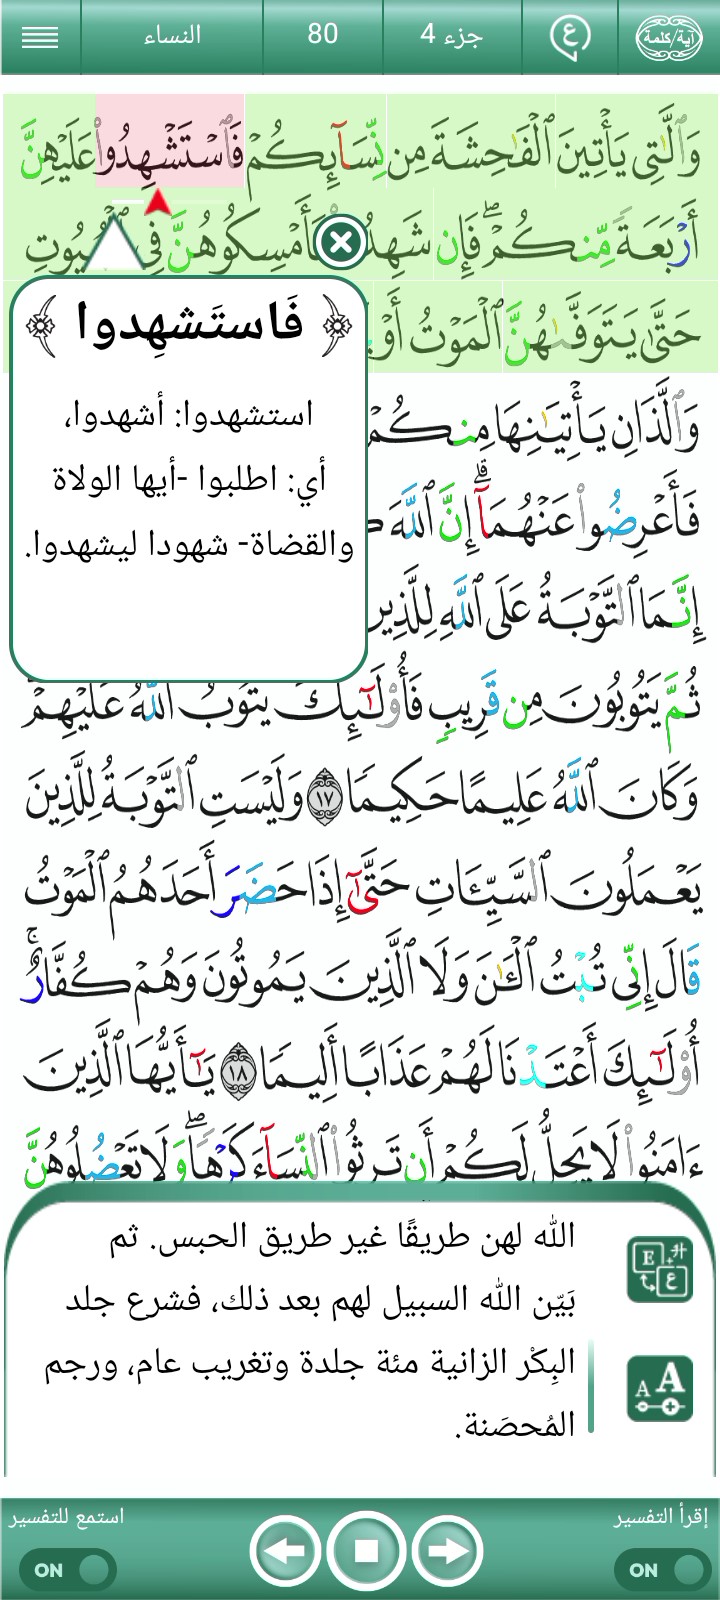 النساء
80
جزء 4
ع
آية/كلمة
وَٱلَّٰتِي يَأۡتِينَ ٱلۡفَٰحِشَةَ مِن نِّسَآئِكُمۡ فَٱسۡتَشۡهِدُواْ عَلَيۡهِنَّ
أَرۡبَعَةٗ مِّنكُمۡۖ فَإِن شَهِدُ فَأَمۡسِكُوهُنَّ فِي ٱلۡبُيُوتِ
حَتَّىٰ يَتَوَفَّىٰهُنَّ ٱلۡمَوۡتُ أَوۡ
﴿ فَاستَشهِدوا ﴾
استشهدوا: أشهدوا،
أي: اطلبوا -أيها الولاة
والقضاة- شهودا ليشهدوا.
وَٱلَّذَانِ يَأۡتِيَٰنِهَا مِنكُمۡ
فَأَعۡرِضُواْ عَنۡهُمَآۗ إِنَّ ٱللَّهَ
إِنَّمَا ٱلتَّوۡبَةُ عَلَى ٱللَّهِ لِلَّذِينَ
ثُمَّ يَتُوبُونَ مِن قَرِيبٖ فَأُوْلَٰٓئِكَ يَتُوبُ ٱللَّهُ عَلَيۡهِمۡۗ
وَكَانَ ٱللَّهُ عَلِيمًا حَكِيمٗا ١٧ وَلَيۡسَتِ ٱلتَّوۡبَةُ لِلَّذِينَ
يَعۡمَلُونَ ٱلسَّيِّـَٔاتِ حَتَّىٰٓ إِذَا حَضَرَ أَحَدَهُمُ ٱلۡمَوۡتُ
قَالَ إِنِّي تُبۡتُ ٱلۡـَٰٔنَ وَلَا ٱلَّذِينَ يَمُوتُونَ وَهُمۡ كُفَّارٌۚ
أُوْلَٰٓئِكَ أَعۡتَدۡنَا لَهُمۡ عَذَابًا أَلِيمٗا ١٨ يَٰٓأَيُّهَا ٱلَّذِينَ
ءَامَنُواْ لَا يَحِلُّ لَكُمۡ أَن تَرِثُواْ ٱلنِّسَآءَ كَرۡهٗاۖ وَلَا تَعۡضُلُوهُنَّ
الله لهن طريقًا غير طريق الحبس. ثم
بَيّن الله السبيل لهم بعد ذلك، فشرع جلد
البِكْر الزانية مئة جلدة وتغريب عام، ورجم
المُحصَنة.
E ع
A A
إقرأ التفسير
استمع للتفسير
ON
ON